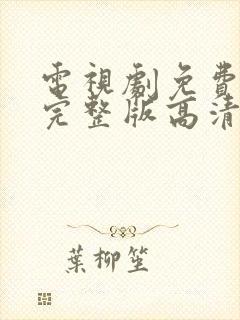 電視劇免費
完整版高清
葉柳笙